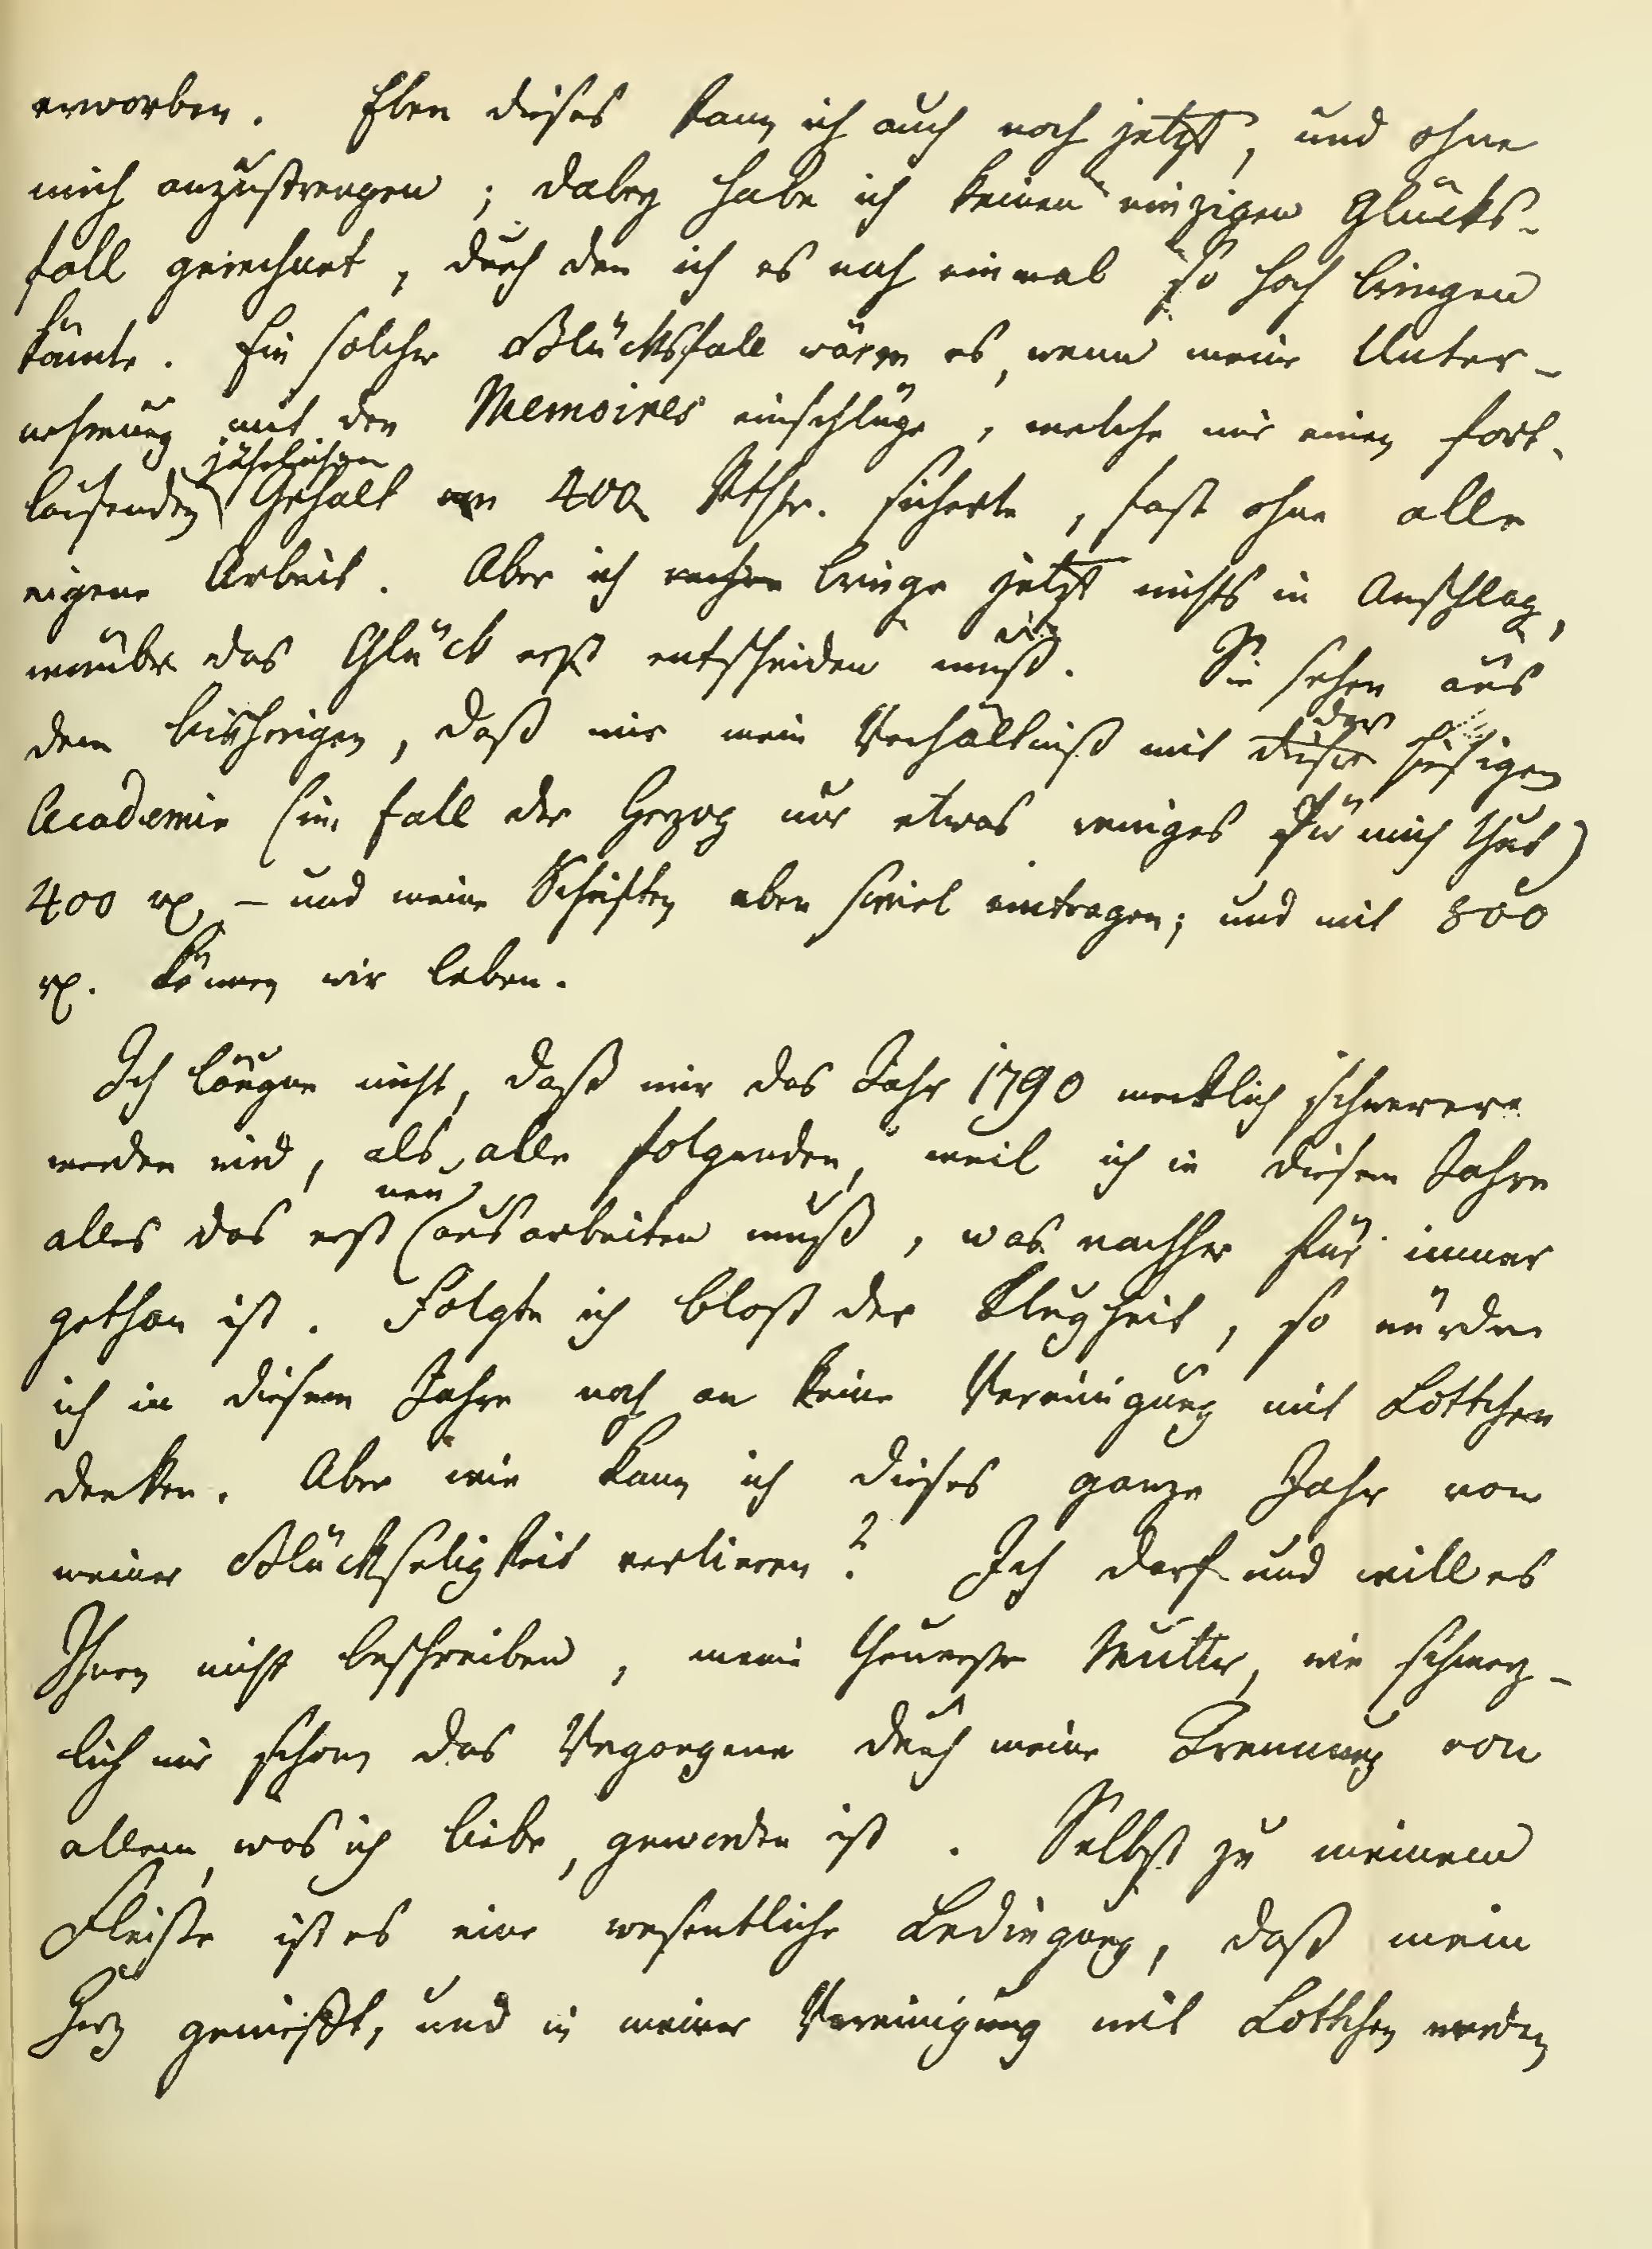 erworben. Eben dieses kann ich auch noch jetzt, und ohne
mich anzustrengen; dabey habe ich keinen einzigen Glücks-
fall gerechnet, durch den ich es noch einmal so hoch bringen
könnte. Ein solcher Glücksfall wäre es, wenn meine Unter-
nehmung mit den Memoires einschlüge, welche mir einen fort-
laufenden jährlichen Gehalt von 400 Rthlr. sicherte, fast ohne alle
eigene Arbeit. Aber ich rechne bringe jetzt nichts in Anschlag,
worüber das Glück erst entscheiden muß. Sie sehen aus
dem bisherigen, daß mir mein Verhältniß mit dieser der hiesigen
Academie (im Fall der Herzog nur etwas weniges für mich thut)
400 rh. – und meine Schriften eben soviel eintragen; und mit 800
rh. können wir leben.
Ich läugne nicht, daß mir das Jahr 1790 merklich schwerer
werden wird, als alle folgenden, weil ich in diesem Jahre
alles das erst neu ausarbeiten muß, was nachher für immer
gethan ist. Folgte ich bloß der Klugheit, so würde
ich in diesem Jahre noch an keine Vereinigung mit Lottchen
denken. Aber wie kann ich dieses ganze Jahr von
meiner Glückseligkeit verlieren? Ich darf und will es
Ihnen nicht beschreiben, meine theuerste Mutter, wie schmerz-
lich mir schon das Vergangene durch meine Trennung von
allem, was ich liebe, geworden ist. Selbst zu meinem
Fleiße ist es eine wesentliche Bedingung, daß mein
Herz genießt, und in meiner Vereinigung mit Lottchen werden